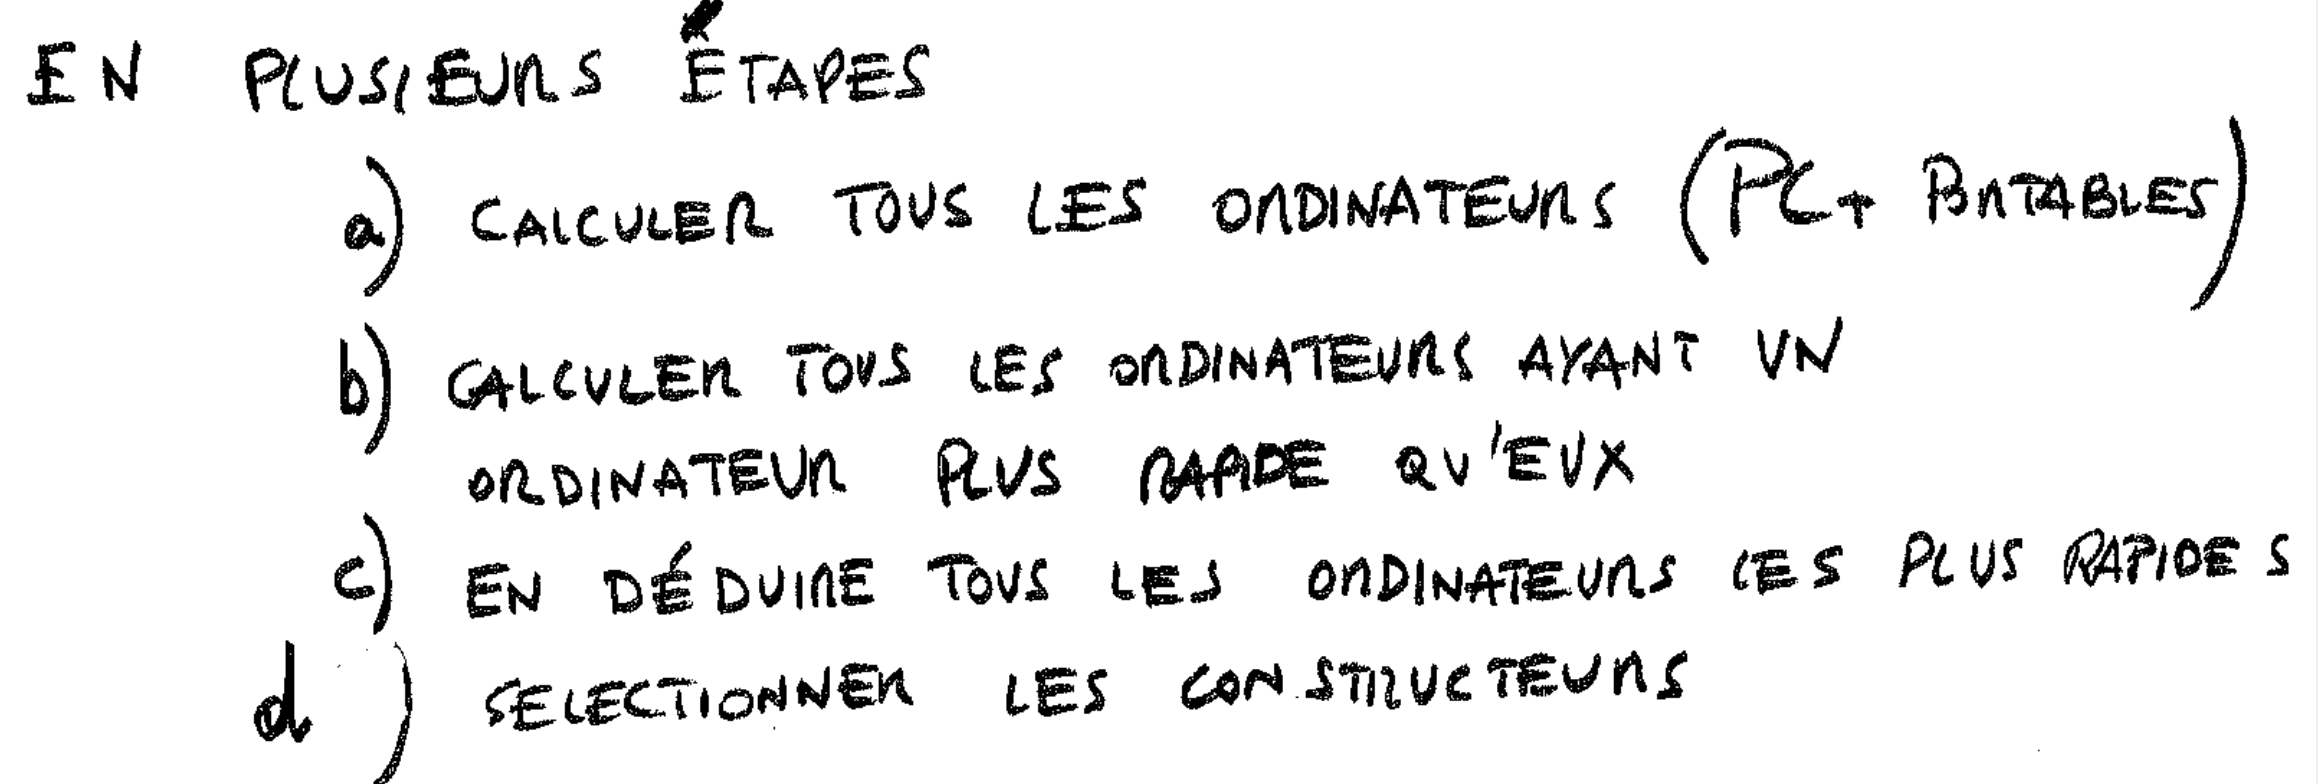 EN PLUSIEURS ÉTAPES
a) CALCULER TOUS LES ORDINATEURS (PC + PORTABLES)
b) CALCULER TOUS LES ORDINATEURS AYANT UN
ORDINATEUR PLUS RAPIDE QU'EUX
c) EN DÉDUIRE TOUS LES ORDINATEURS LES PLUS RAPIDES
d) SELECTIONNER LES CONSTRUCTEURS